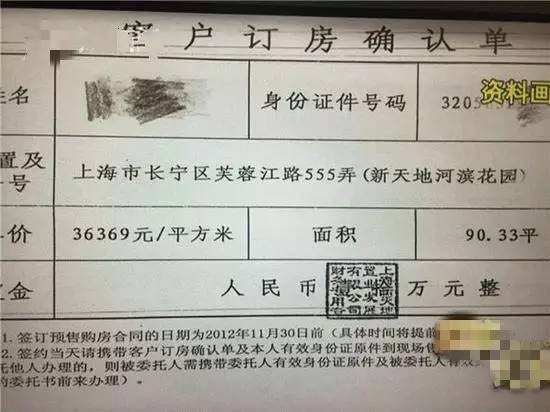 客户订房确认单
资料画
姓名 身份证件号码 3205
置及 上海市长宁区芙蓉江路555弄(新天地河滨花园)
号
价 36369元/平方米 面积 90.33平
定金 人民币 万元整
1. 签订预售购房合同的日期为2012年11月30日前(具体时间将提前
2. 签约当天请携带客户订房确认单及本人有效身份证原件到现场
托他人办理的，则被委托人需携带委托人有效身份证原件及被委托人有效
的委托书前来办理)。